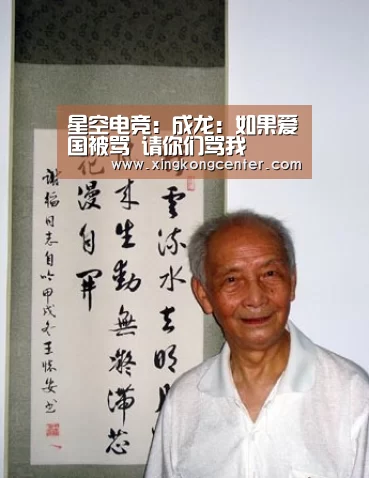 星空电竞：成龙：如果爱
国被骂 请你们骂我
www.xingkongcenter.com
雲流水去明
来生動無凝滯
花漫自開
同志自吟甲戌冬王懷安书